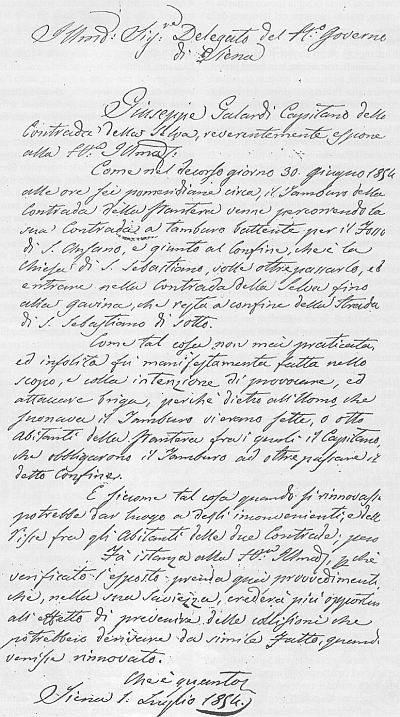 Illmo: Sigre. Delegato del R.o Governo
di Siena
Giuseppe Galardi Capitano della
Contrada della Selva, reverentemente espone
alla Illma.
Come nel decorso giorno 30. giugno 1854
alle ore sei pomeridiane circa, il Tamburo della
Contrada della Pantera venne percorrendo la
sua Contrada a tamburo battente per il Fosso
di S. Ansano, e giunto al Confine, che è la
Chiesa di S. Sebastiano, volle oltrepassarlo, ed
entrare nella Contrada della Selva fino
alla gavina, che resta a confine della Strada
di S. Sebastiano di Sotto.
Come tal cosa non mai praticata,
ed insolita fu manifestamente fatta nello
scopo, e colla intenzione di provocare, ed
attaccare briga, perchè dietro all'Uomo che
suonava il Tamburo vi erano sette, o otto
Abitanti della Pantera fra i quali il Capitano,
che obbligarono il Tamburo ad oltrepassare il
detto Confine.
E siccome tal cosa quando si rinnovasse
potrebbe dar luogo a degli inconvenienti, e delle
risse fra gli Abitanti delle due Contrade; però
Fà istanza alla Illma, pchè
verificato l'esposto prenda quei provvedimenti
che, nella sua Saviezza, crederà più opportuni
all'effetto di prevenire delle collisioni che
potrebbero derivare da simile Fatto, quando
venisse rinnovato.
Che è quanto
Siena 1. Luglio 1854.